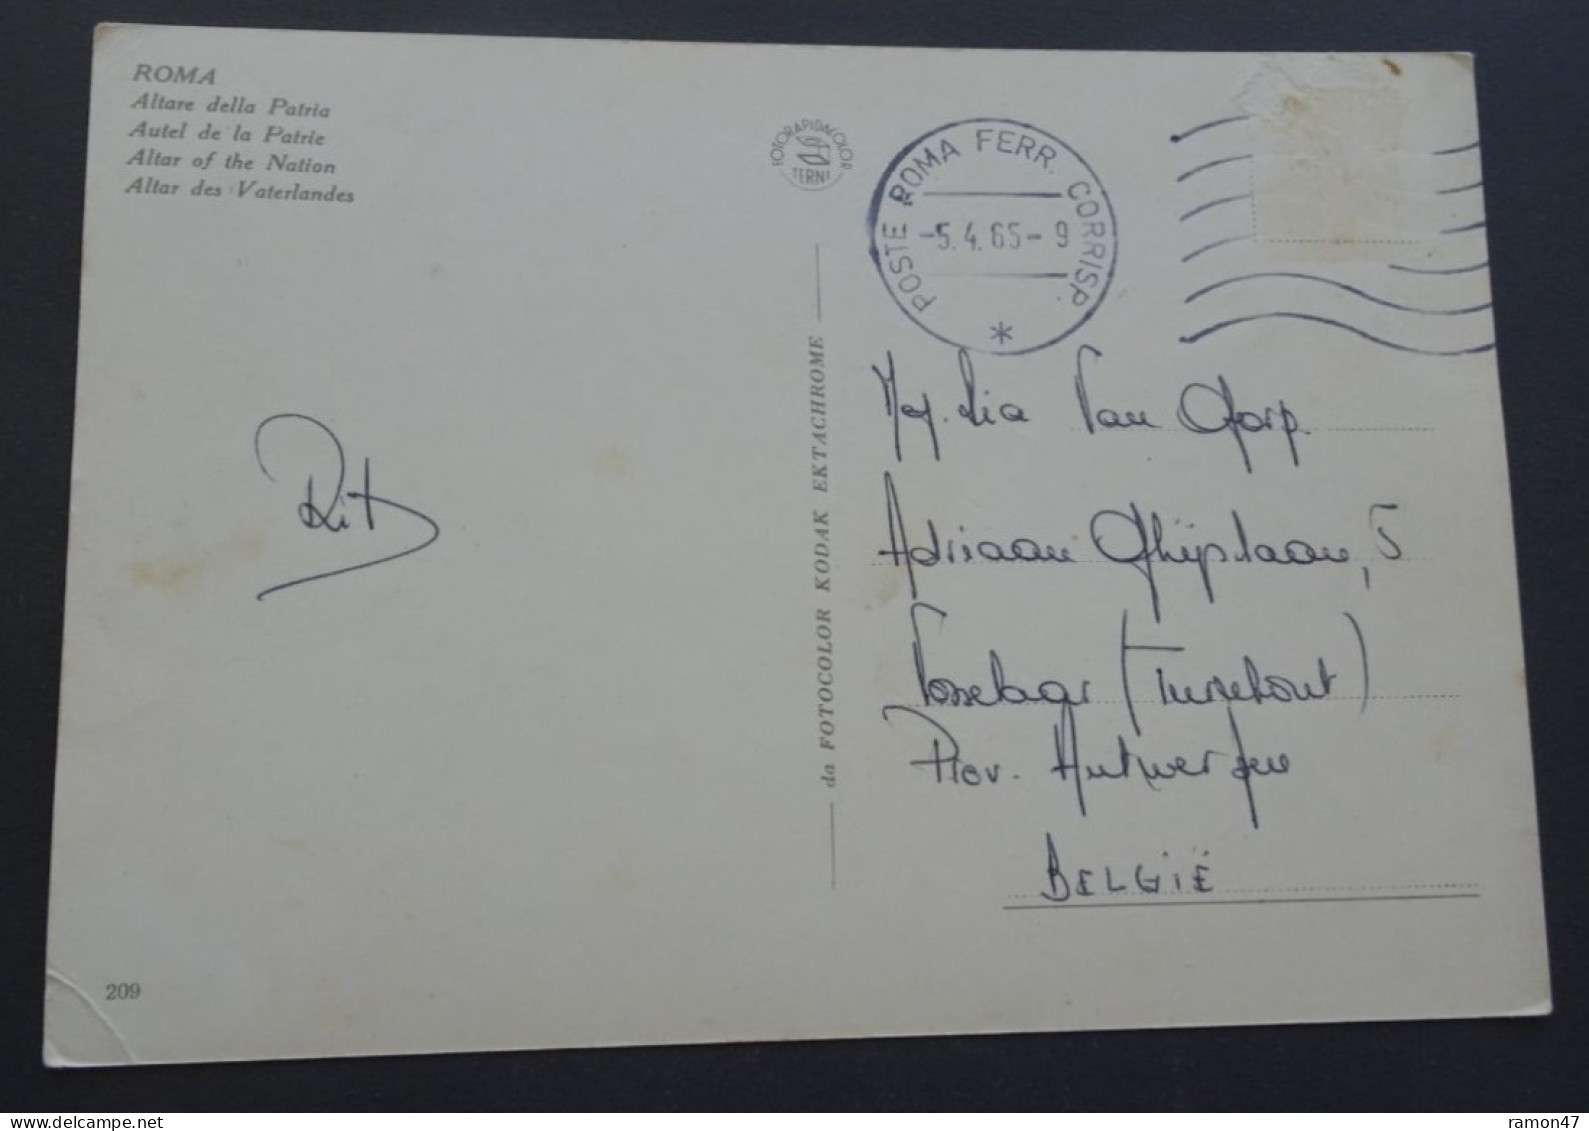 ROMA
Altare della Patria
Autel de la Patrie
Altar of the Nation
Altar des Vaterlandes
FOTORAPIDACOLOR
TERNI
POSTE ROMA FERR. CORRISP.
-5.4.65-9
*
da FOTOCOLOR KODAK EKTACHROME
Rit
Mej. Lia Van Gorp.
Adriaan Ghijslaan, 5
Vosselaar (Turnhout)
Prov. Antwerpen
BELGIË
209
delcampe.net
ramon47